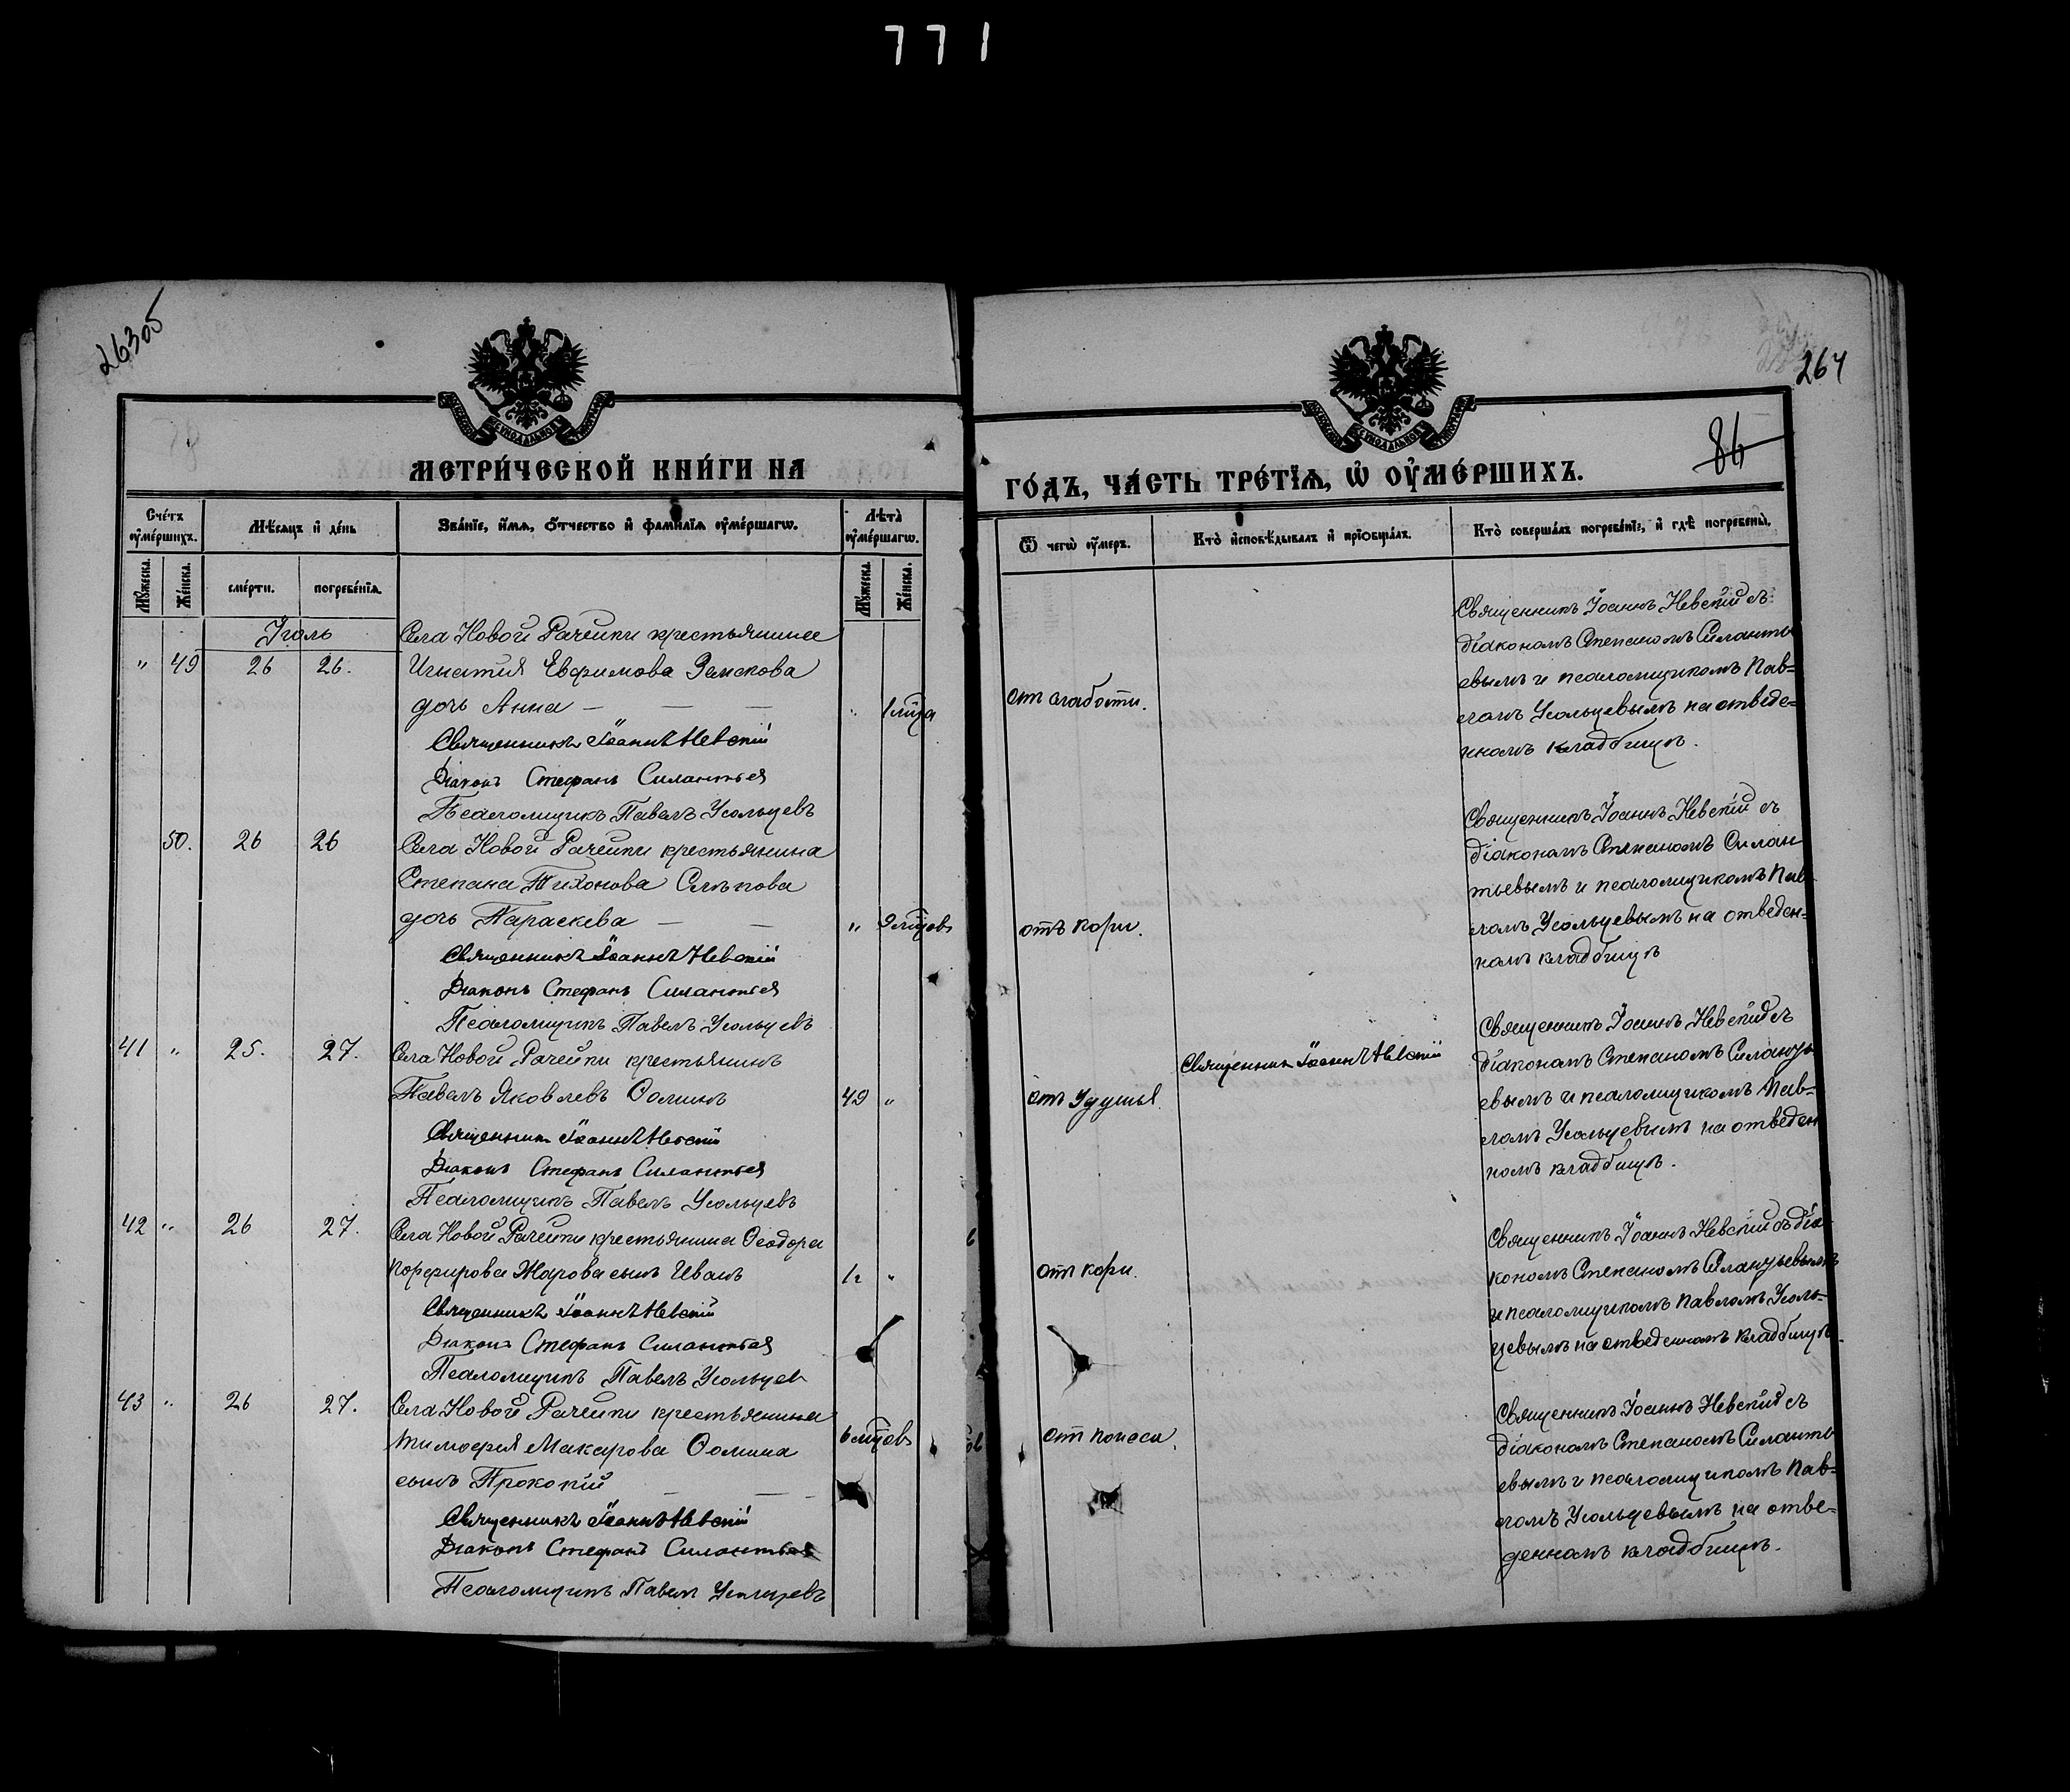 771
26305
264
86
МЕТРИ́ЧЕСКОЙ КНИ́ГИ НА
ГО́ДЪ, ЧА́СТЬ ТРЕ́ТЇѦ, Ѡ҆ ОУ҆МЕ́РШИХЪ.
Счéтъ оу҆мéршихъ.
Мѣ́сяцъ и҆ дéнь
Звáнїе, и҆́мѧ, ѻ҆́тчество и҆ фамилїѧ оу҆мéршагѡ.
Лѣ́та оу҆мéршагѡ.
Ѿ чегѡ̀ оу҆́меръ.
Ктò и҆сповѣ́дывалъ и҆ прїѻбщáлъ.
Ктò совершáлъ погребéнїе, и҆ гдѣ̀ погребены̀.
Мꙋ́жеска.
Же́нска.
смéрти.
погребéнїѧ.
Мꙋ́жеска.
Же́нска.
Іюль
Села Новой Рачейки крестьянина
" 49 26 26. Игнатия Евфимова Земскова
дочь Анна — — — " 1 м͠ца от слабости.
Священникъ Іоаннъ Невскій
Діаконъ Стефанъ Силантьев
Псаломщикъ Павелъ Усольцевъ
Священникъ Іоаннъ Невскій съ
діакономъ Степаномъ Силанть
евымъ и псаломщикомъ Пав=
ломъ Усольцевымъ на отведе=
нномъ кладбищѣ.
50. 26 26 Села Новой Рачейки крестьянина
Степана Тихонова Слѣпова
дочь Параскева — — " 9 м͠цовъ отъ кори.
Священникъ Іоаннъ Невскій
Діаконъ Стефанъ Силантьев
Псаломщикъ Павелъ Усольцевъ
Священникъ Іоаннъ Невскій съ
діакономъ Степаномъ Силан
тьевымъ и псаломщикомъ Пав
ломъ Усольцевымъ на отведен=
номъ кладбищѣ
41 " 25. 27. Села Новой Рачейки крестьянинъ
Павелъ Яковлевъ Ѳоминъ 49 " отъ удушья.
Священникъ Іоаннъ Невскій
Діаконъ Стефанъ Силантьев
Псаломщикъ Павелъ Усольцевъ
Священник Іоаннъ Невскій
Священникъ Іоаннъ Невскій съ
діакономъ Степаномъ Силанть
евымъ и псаломщикомъ Пав=
ломъ Усольцевымъ на отведен
номъ кладбищѣ.
42 " 26 27. Села Новой Рачейки крестьянина Ѳеодора
Порфирова Жарова сынъ Иванъ " отъ кори.
Священникъ Іоаннъ Невскій
Діаконъ Стефанъ Силантьев
Псаломщикъ Павелъ Усольцев
Священникъ Іоаннъ Невскій съ діа
кономъ Степаномъ Силантьевымъ
и псаломщикомъ Павломъ Усоль=
цевымъ на отведенномъ кладбищѣ.
43 " 26 27. Села Новой Рачейки крестьянина
Тимофея Макарова Ѳомина 6 м͠цовъ от поноса.
сынъ Прокопій — — —
Священникъ Іоаннъ Невскій
Діаконъ Стефанъ Силантьев
Псаломщикъ Павел Усольцевъ
Священникъ Іоаннъ Невскій съ
діакономъ Степаномъ Силанть
евымъ и псаломщикомъ Пав=
ломъ Усольцевымъ на отве=
денномъ кладбищѣ.